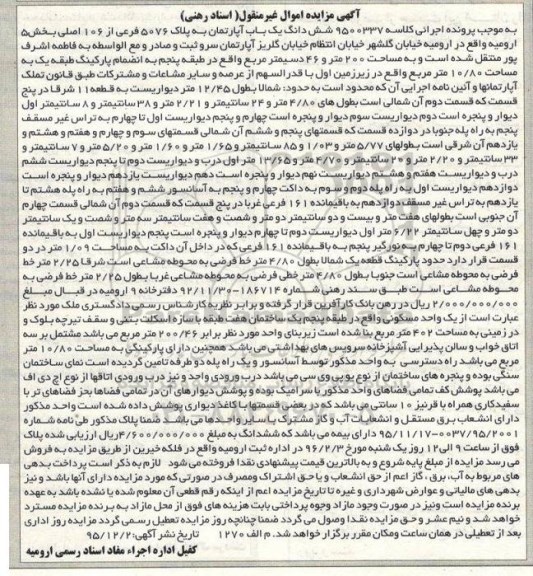 آگهی مزایده اموال غیرمنقول( اسناد رهنی)
به موجب پرونده اجرائی کلاسه ۹۵۰۰۳۳۷ شش دانگ یک باب آپارتمان به پلاک ۵۰۷۶ فرعی از ۱۰۶ اصلی بخش۵
ارومیه واقع در ارومیه خیابان گلشهر خیابان انتظام خیابان گلریز آپارتمان سرو ثبت و صادر و مع الواسطه به فاطمه اشرف
پور منتقل شده است و به مساحت ۲۰۰ متر و ۴۶ دسیمتر مربع واقع در طبقه پنجم به انضمام پارکینگ طبقه یک به
مساحت ۱۰/۸۰ متر مربع واقع در زیرزمین اول با قدرالسهم از عرصه و سایر مشاعات و مشترکات طبق قانون تملک
آپارتمانها و آئین نامه اجرایی آن که محدود است به حدود: شمالا بطول ۱۲/۴۵ متر دیواریست به قطعه۱۱ شرقا در پنج
قسمت که قسمت دوم آن شمالی است بطول های ۴/۸۰ متر و ۲۴ سانتیمتر و ۲/۲۱ متر و ۳۸ سانتیمتر و ۸ سانتیمتر اول
دیوار و پنجره است دوم دیواریست سوم دیوار و پنجره است چهارم و پنجم دیواریست اول تا چهارم به تراس غیر مسقف
پنجم به راه پله جنوبا در دوازده قسمت که قسمتهای پنجم و ششم آن شمالی قسمتهای سوم و چهارم و هفتم و هشتم و
یازدهم آن شرقی است بطولهای ۵/۷۷ متر و ۱/۰۳ و ۸۵ سانتیمتر و ۱/۶۵ متر و ۱/۶۰ متر و ۵/۲۰ متر و ۷ سانتیمتر و
۳۳ سانتیمتر و ۲/۲۰ متر و ۲۰ سانتیمتر و ۴/۷۰ متر و ۱۳/۶۵ متر اول درب و دیواریست دوم تا پنجم دیواریست ششم
درب و دیواریست هفتم و هشتم دیواریست نهم دیوار و پنجره است دهم دیواریست یازدهم دیوار و پنجره است
دوازدهم دیواریست اول به راه پله دوم و سوم به داکت چهارم و پنجم به آسانسور ششم و هفتم به راه پله هشتم تا
یازدهم به تراس غیر مسقف دوازدهم به باقیمانده ۱۶۱ فرعی غربا در پنج قسمت که قسمت دوم آن شمالی قسمت چهارم
آن جنوبی است بطولهای هفت متر و بیست و دو سانتیمتر دو متر و شصت و هفت سانتیمتر سه متر و شصت و یک سانتیمتر
دو متر و چهل سانتیمتر ۶/۲۲ متر اول دیواریست دوم تا چهارم دیوار و پنجره است پنجم دیواریست اول به باقیمانده
۱۶۱ فرعی دوم تا چهارم به نورگیر پنجم به باقیمانده ۱۶۱ فرعی که در داخل آن داکت به مساحت ۱/۰۹ متر در دو
قسمت قرار دارد حدود پارکینگ قطعه یک شمالا بطول ۴/۸۰ متر خط فرضی به محوطه مشاعی است شرقا ۲/۲۵ متر خط
فرضی به محوطه مشاعی است جنوبا بطول ۴/۸۰ متر خطی فرضی به محوطه مشاعی غربا بطول ۲/۲۵ متر خط فرضی به
محوطه مشاعی است طبق سند رهنی شماره ۱۸۶۷۱۴-۹۲/۱۱/۳۰ دفترخانه ۹ ارومیه در قبال مبلغ
۲/۰۰۰/۰۰۰/۰۰۰ ریال در رهن بانک کارآفرین قرار گرفته و برابر نظریه کارشناس رسمی دادگستری ملک مورد نظر
عبارت است از یک واحد مسکونی واقع در طبقه پنجم یک ساختمان هفت طبقه با سازه اسکلت بتنی و سقف تیرچه بلوک و
در زمینی به مساحت ۴۰۲ متر مربع بنا شده است زیربنای واحد مورد نظر برابر ۲۰۰/۴۶ متر مربع می باشد مشتمل بر سه
اتاق خواب و سالن پذیرایی آشپزخانه سرویس های بهداشتی می باشد همچنین دارای پارکینگی به مساحت ۱۰/۸۰ متر
مربع می باشد راه دسترسی به واحد مذکور توسط آسانسور و یک راه پله دو طرفه تامین گردیده است نمای ساختمان
سنگی بوده و پنجره های ساختمان از نوع یو پی وی سی می باشد درب ورودی واحد و نیز درب ورودی اتاقها از نوع اچ دی اف
می باشد پوشش کف تمامی فضاهای واحد مذکور با سرامیک بوده و پوشش دیوارهای آن در تمامی فضاها بجز فضاهای تر با
سفیدکاری همراه با قرنیز ۱۰ سانتی می باشد که در بعضی قسمتها با کاغذ دیواری پوشش داده شده است واحد مذکور
دارای انشعاب برق مستقل و انشعابات آب و گاز مشترک با سایر واحدها می باشد ضمنا پلاک مذکور طی نامه شماره
۹۵/۱۱/۱۷-۰۰۳۷/۹۵/۲۰۰۱ دارای بیمه می باشد که ششدانگ به مبلغ ۴/۶۰۰/۰۰۰/۰۰۰ریال ارزیابی شده پلاک
فوق از ساعت ۹ الی ۱۲ روز یک شنبه مورخ ۹۶/۲/۳ در اداره ثبت ارومیه واقع در فلکه خیرین از طریق مزایده به فروش
می رسد مزایده از مبلغ پایه شروع و به بالاترین قیمت پیشنهادی نقدا فروخته می شود لازم به ذکر است پرداخت بدهی
های مربوط به آب، برق، گاز اعم از حق انشعاب و یا حق اشتراک ومصرف در صورتی که مورد مزایده دارای آنها باشد و نیز
بدهی های مالیاتی و عوارض شهرداری و غیره تا تاریخ مزایده اعم از اینکه رقم قطعی آن معلوم شده یا نشده باشد به عهده
برنده مزایده است ونیز در صورت وجود مازاد وجوه پرداختی بابت هزینه های فوق از محل مازاد به برنده مزایده مسترد
خواهد شد و نیم عشر و حق مزایده نقدا وصول می گردد ضمنا چنانچه روز مزایده تعطیل رسمی گردد مزایده روز اداری
بعد از تعطیلی در همان ساعت ومکان مقرر برگزار خواهد شد. م الف ۱۲۷۰ تاریخ نشر آگهی: ۹۵/۱۲/۲
کفیل اداره اجراء مفاد اسناد رسمی ارومیه